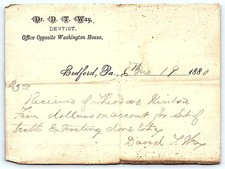 Dr. D. T. Way,
DENTIST,
Office Opposite Washington House,
Bedford, Pa., 19 1880
$5.00
Received of Theodore
Five dollars on account for Set of
teeth & treating done
David T. Way